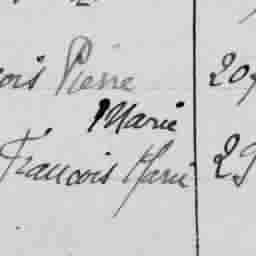 ois Pierre 20
Marie
François Marie 29